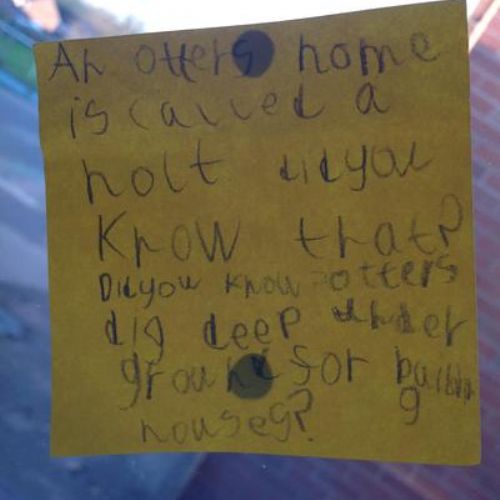 An otters home
is called a
holt did you
Know that?
Did you know otters
dig deep under
ground for building
houses?